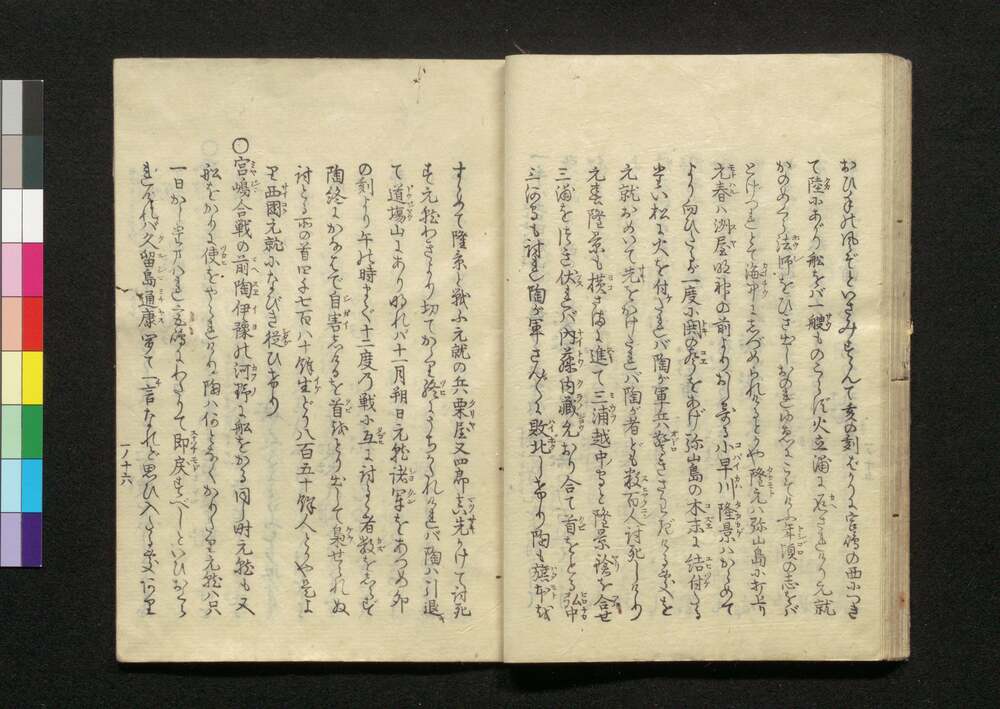 おひ手の風ぞといさみすゝんで亥の刻ばかりに宮嶋の西につき
て陸にあがり舩をバ一艘ものこらず火立浦にかへされけり元就
かのめくら法師をひき出しおのれゆゑにこそ年頃の志をバ
とげつれとて海中にしづめられけるとかや隆元ハ弥山島に打上り
元春ハ洲屋明神の前よりおし寄る小早川隆景ハからめて
より向ひたるが一度に鬨の声をあげ弥山島の木末に結付たる
松に火を付たれバ陶が軍兵ハ驚きさわぎける処を
元就おめいて先をかけたれバ陶が者ども数百人討死しけり
元春隆景も横さまに進て三浦越中守と隆景鎗を合せ
三浦をつき伏れバ内藤内蔵允おり合て首をとる弘中
三河守も討れ陶が軍さんざんに敗北しけり陶も旗本を
すゝめて隆景と戦ふ元就の兵粟屋又四郎真先かけて討死
す元就わきより切てかゝり終にうちかたれけれバ陶ハ引退
て道場山にあり明れバ十一月朔日元就諸軍をあつめ卯
の刻より午の時まで十二度の戦に互に討るゝ者数をしらず
陶終にかなはで自害しけるを首をとり出して梟せられぬ
討とる所の首四千七百八十餘生どり八百五十餘人とかや是よ
り西國元就になびき従ひけり
○宮嶋合戦の前陶伊豫の河野に舩をかる同し時元就も又
舩をかりに使をやられけり陶ハ何となくかりけり元就ハ只
一日かし給ハれ宮嶋にわたりて即戻すべしといひおくら
れけれバ久留島通康聞て一言なれど思ひ入たる処あり
一ノ十六